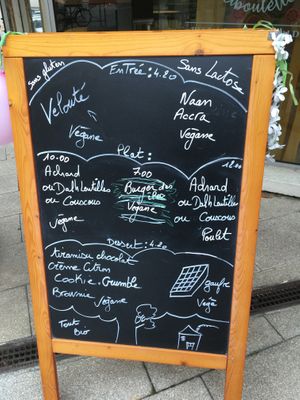 Sans gluten
EnTrée: 4.20
Sans Lactose
Velouté
Végane
Naan
Accra
Végane
Plat:
10.00
Adnard
ou Dalh Lentilles
ou Couscous
Végane
7.00
Burger des
Végane
12.00
Adnard
ou Dalh_Lentilles
ou Couscous
Poulet
Dessert: 4.20
tiramisu chocolat
Crème Citron
Cookie. Crumble
Brownie Végane
gaufre
Végé
Tout
Bio